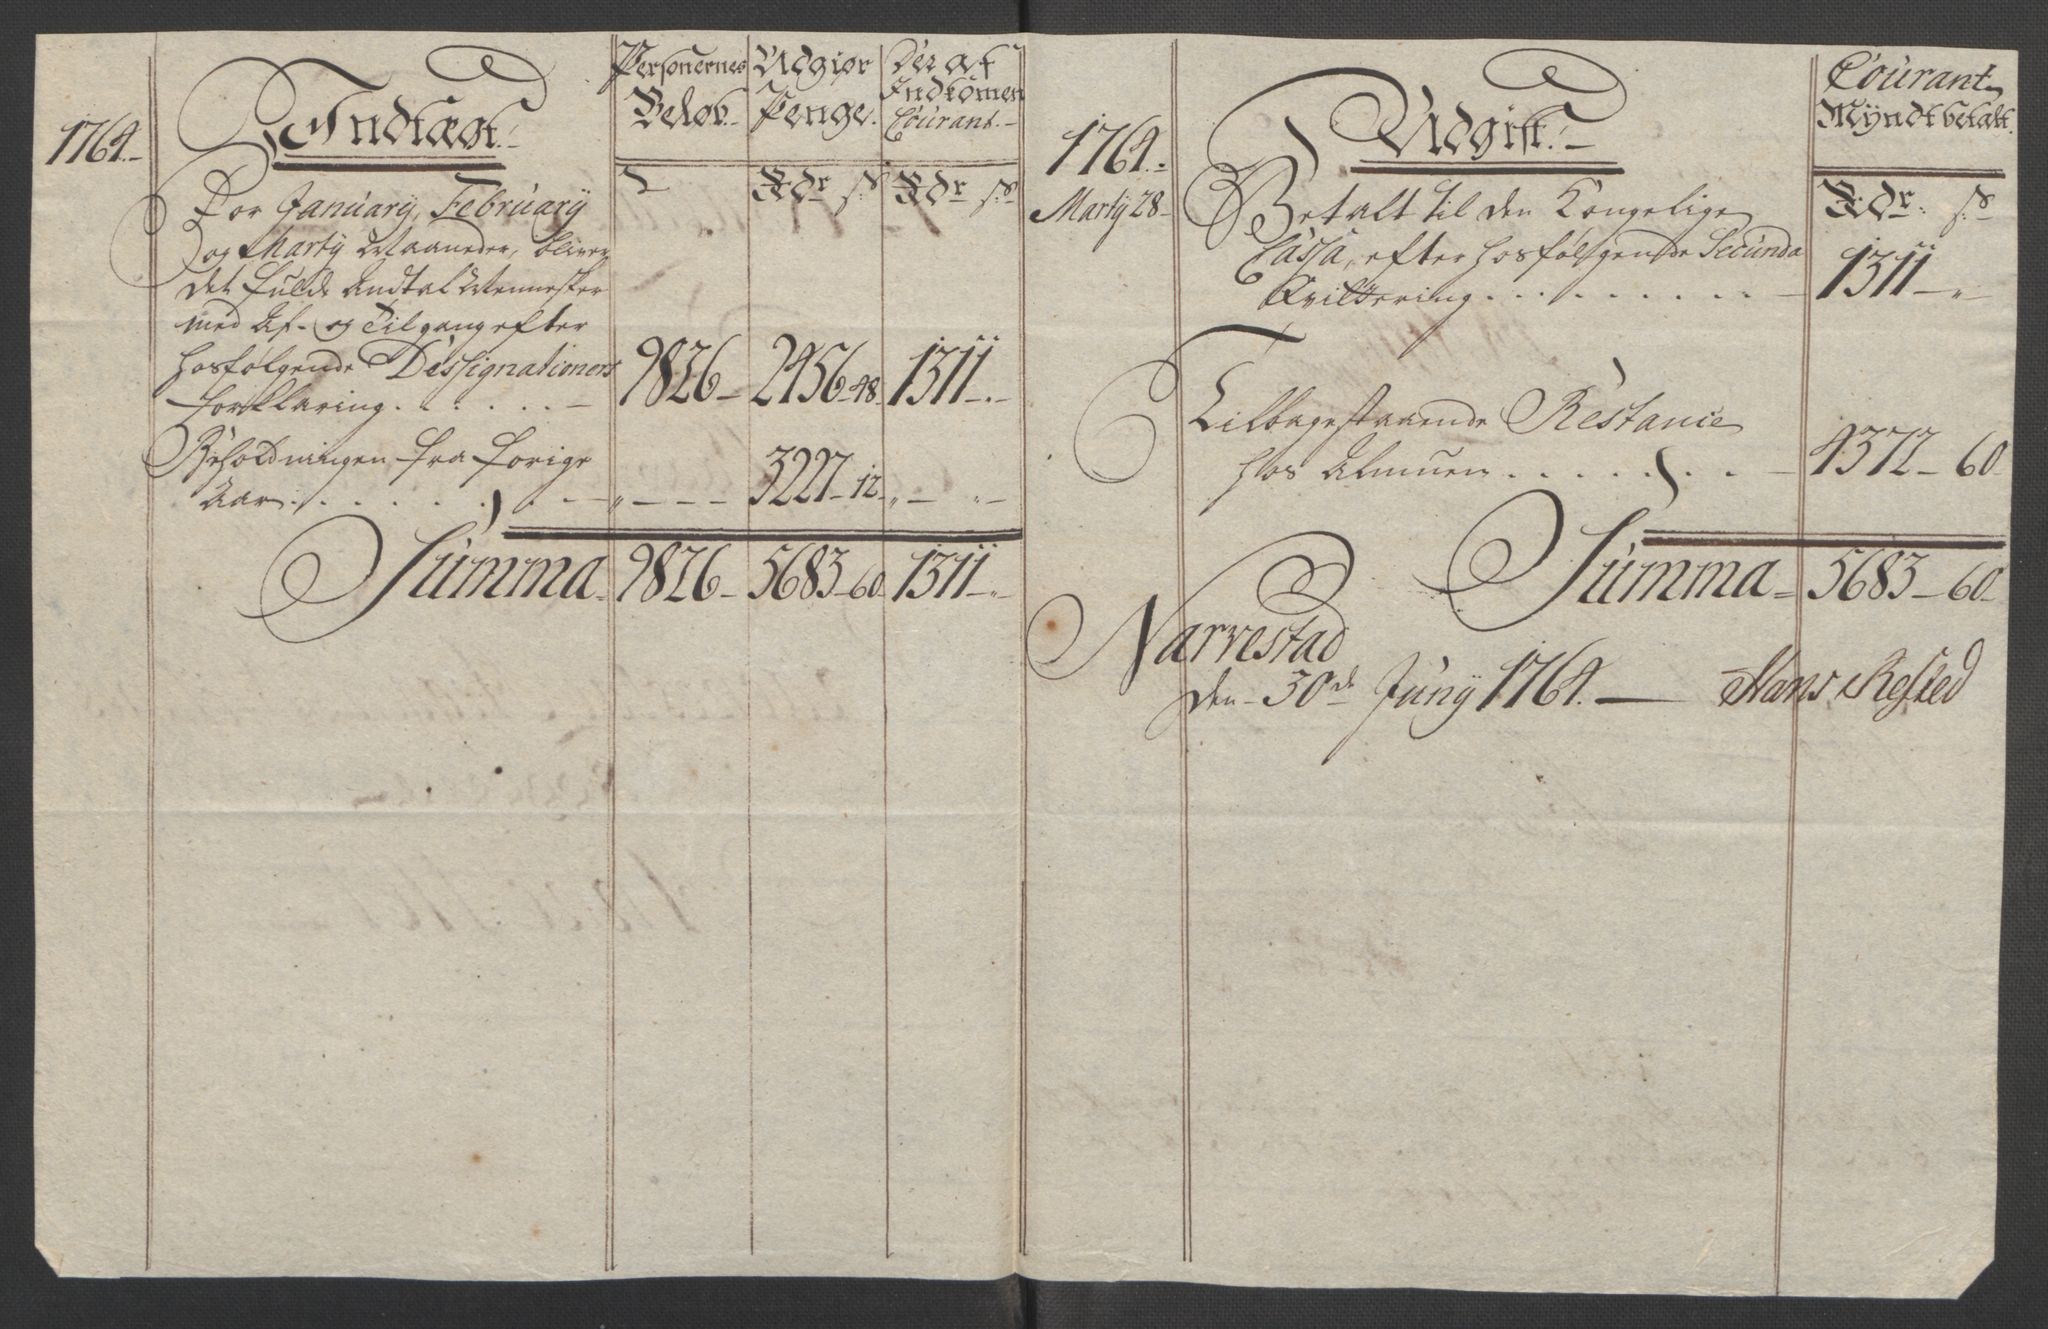 1764.
Indtægt.
Personernes
Beløb.
Udgiør
Penge.
Der af
Indkomen
Courant.
Rdr s.
Rdr s.
For January, February
og Marty Maaneder, bliver
det fulde Andtal Mennesker
med Af- og Tilgang efter
hosfølgende Dessignationers
forklaring. . . . . . . — 9826 — 2456 - 48. 1311 - . -
Beholdningen fra forige
Aar. . . . . . . . — „ — — — 3227 - 12 - „ — „ —
Summa 9826 - 5683 - 60. 1311 - „ -
1764.
Marty 28
Udgift.
Courant
Myndt betalt.
Rdr. s.
Betalt til den Kongelige
Cassa, efter hosfølgende Secunda
Qvittering. . . . . . . . . — 1311 — „
Tilbagestaaende Restance
hos Almuen. . . . . . . . — 4372 — 60
Summa 5683 — 60
Narvestad
den 30de Juny 1764. — Hans Rested